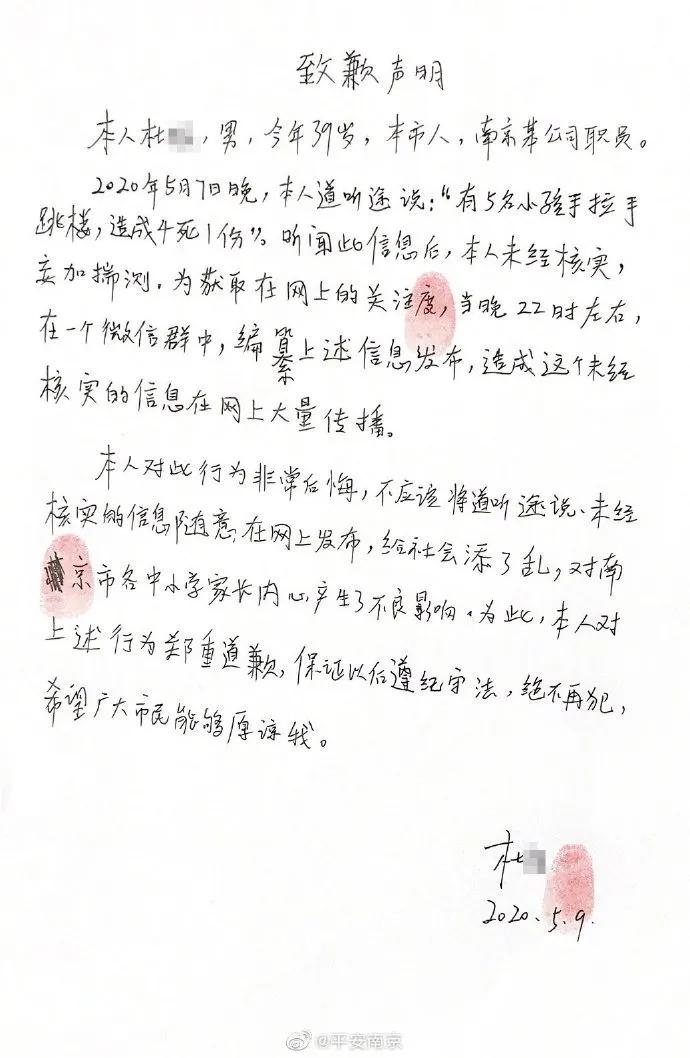 致歉声明
本人杜，男，今年39岁，本市人，南京某公司职员。
2020年5月7日晚，本人道听途说：“有5名小孩手拉手
跳楼，造成4死1伤”。听闻此信息后，本人未经核实，
妄加揣测。为获取在网上的关注度，当晚22时左右，
在一个微信群中，编纂上述信息发布，造成这个未经
核实的信息在网上大量传播。
本人对此行为非常后悔，不应该将道听途说、未经
核实的信息随意在网上发布，给社会添了乱，对南
京市各中小学家长内心产生了不良影响。为此，本人对
上述行为郑重道歉，保证以后遵纪守法，绝不再犯，
希望广大市民能够原谅我。
杜
2020.5.9.
@平安南京